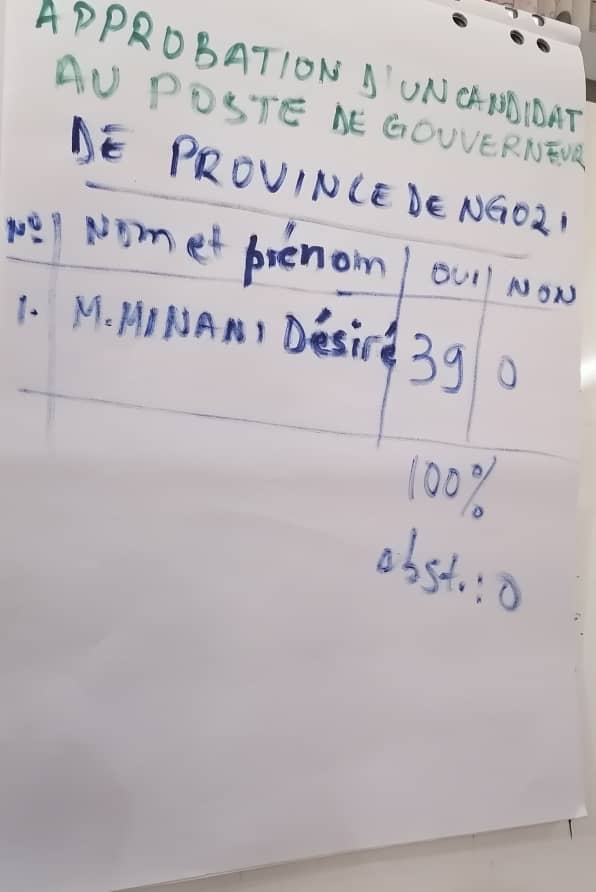 APPROBATION D'UN CANDIDAT
AU POSTE DE GOUVERNEUR
DE PROVINCE DE NGOZI
N° Nom et prénom OUI NON
1. M. MINANI Désiré 39 0
100%
abst.: 0